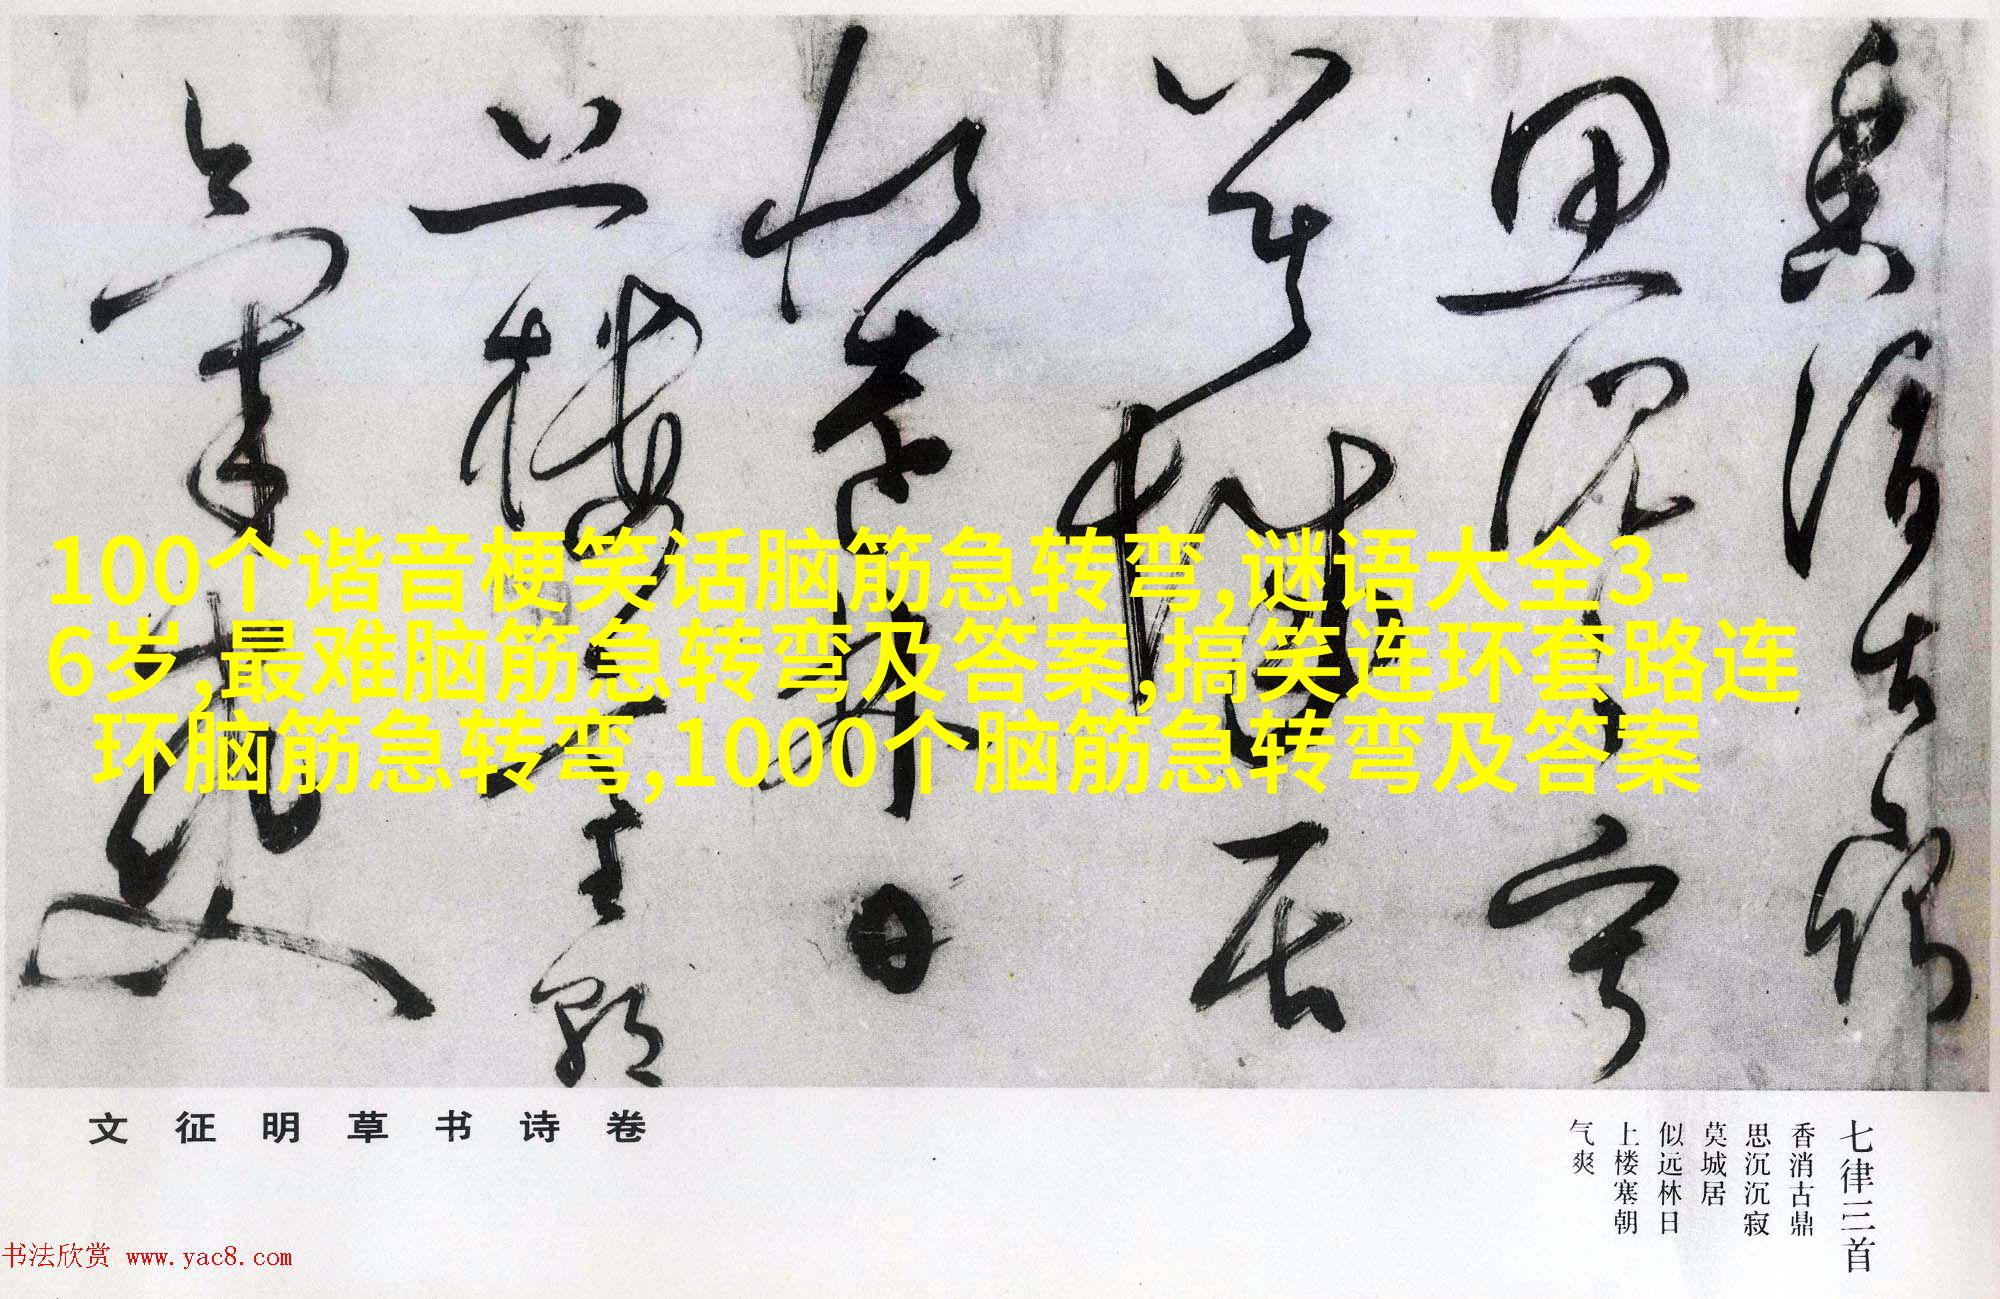 100个谐音梗笑话脑筋急转弯,谜语大全3-
6岁,最难脑筋急转弯及答案,搞笑连环套路连
环脑筋急转弯,1000个脑筋急转弯及答案
香消古鼎
思沉沉寂
莫城居
似远林日
上楼塞朝
气爽
文征明草书诗卷
七律三首
香消古鼎
思沉沉寂
莫城居
似远林日
上楼塞朝
气爽
书法欣赏 www.yac8.com